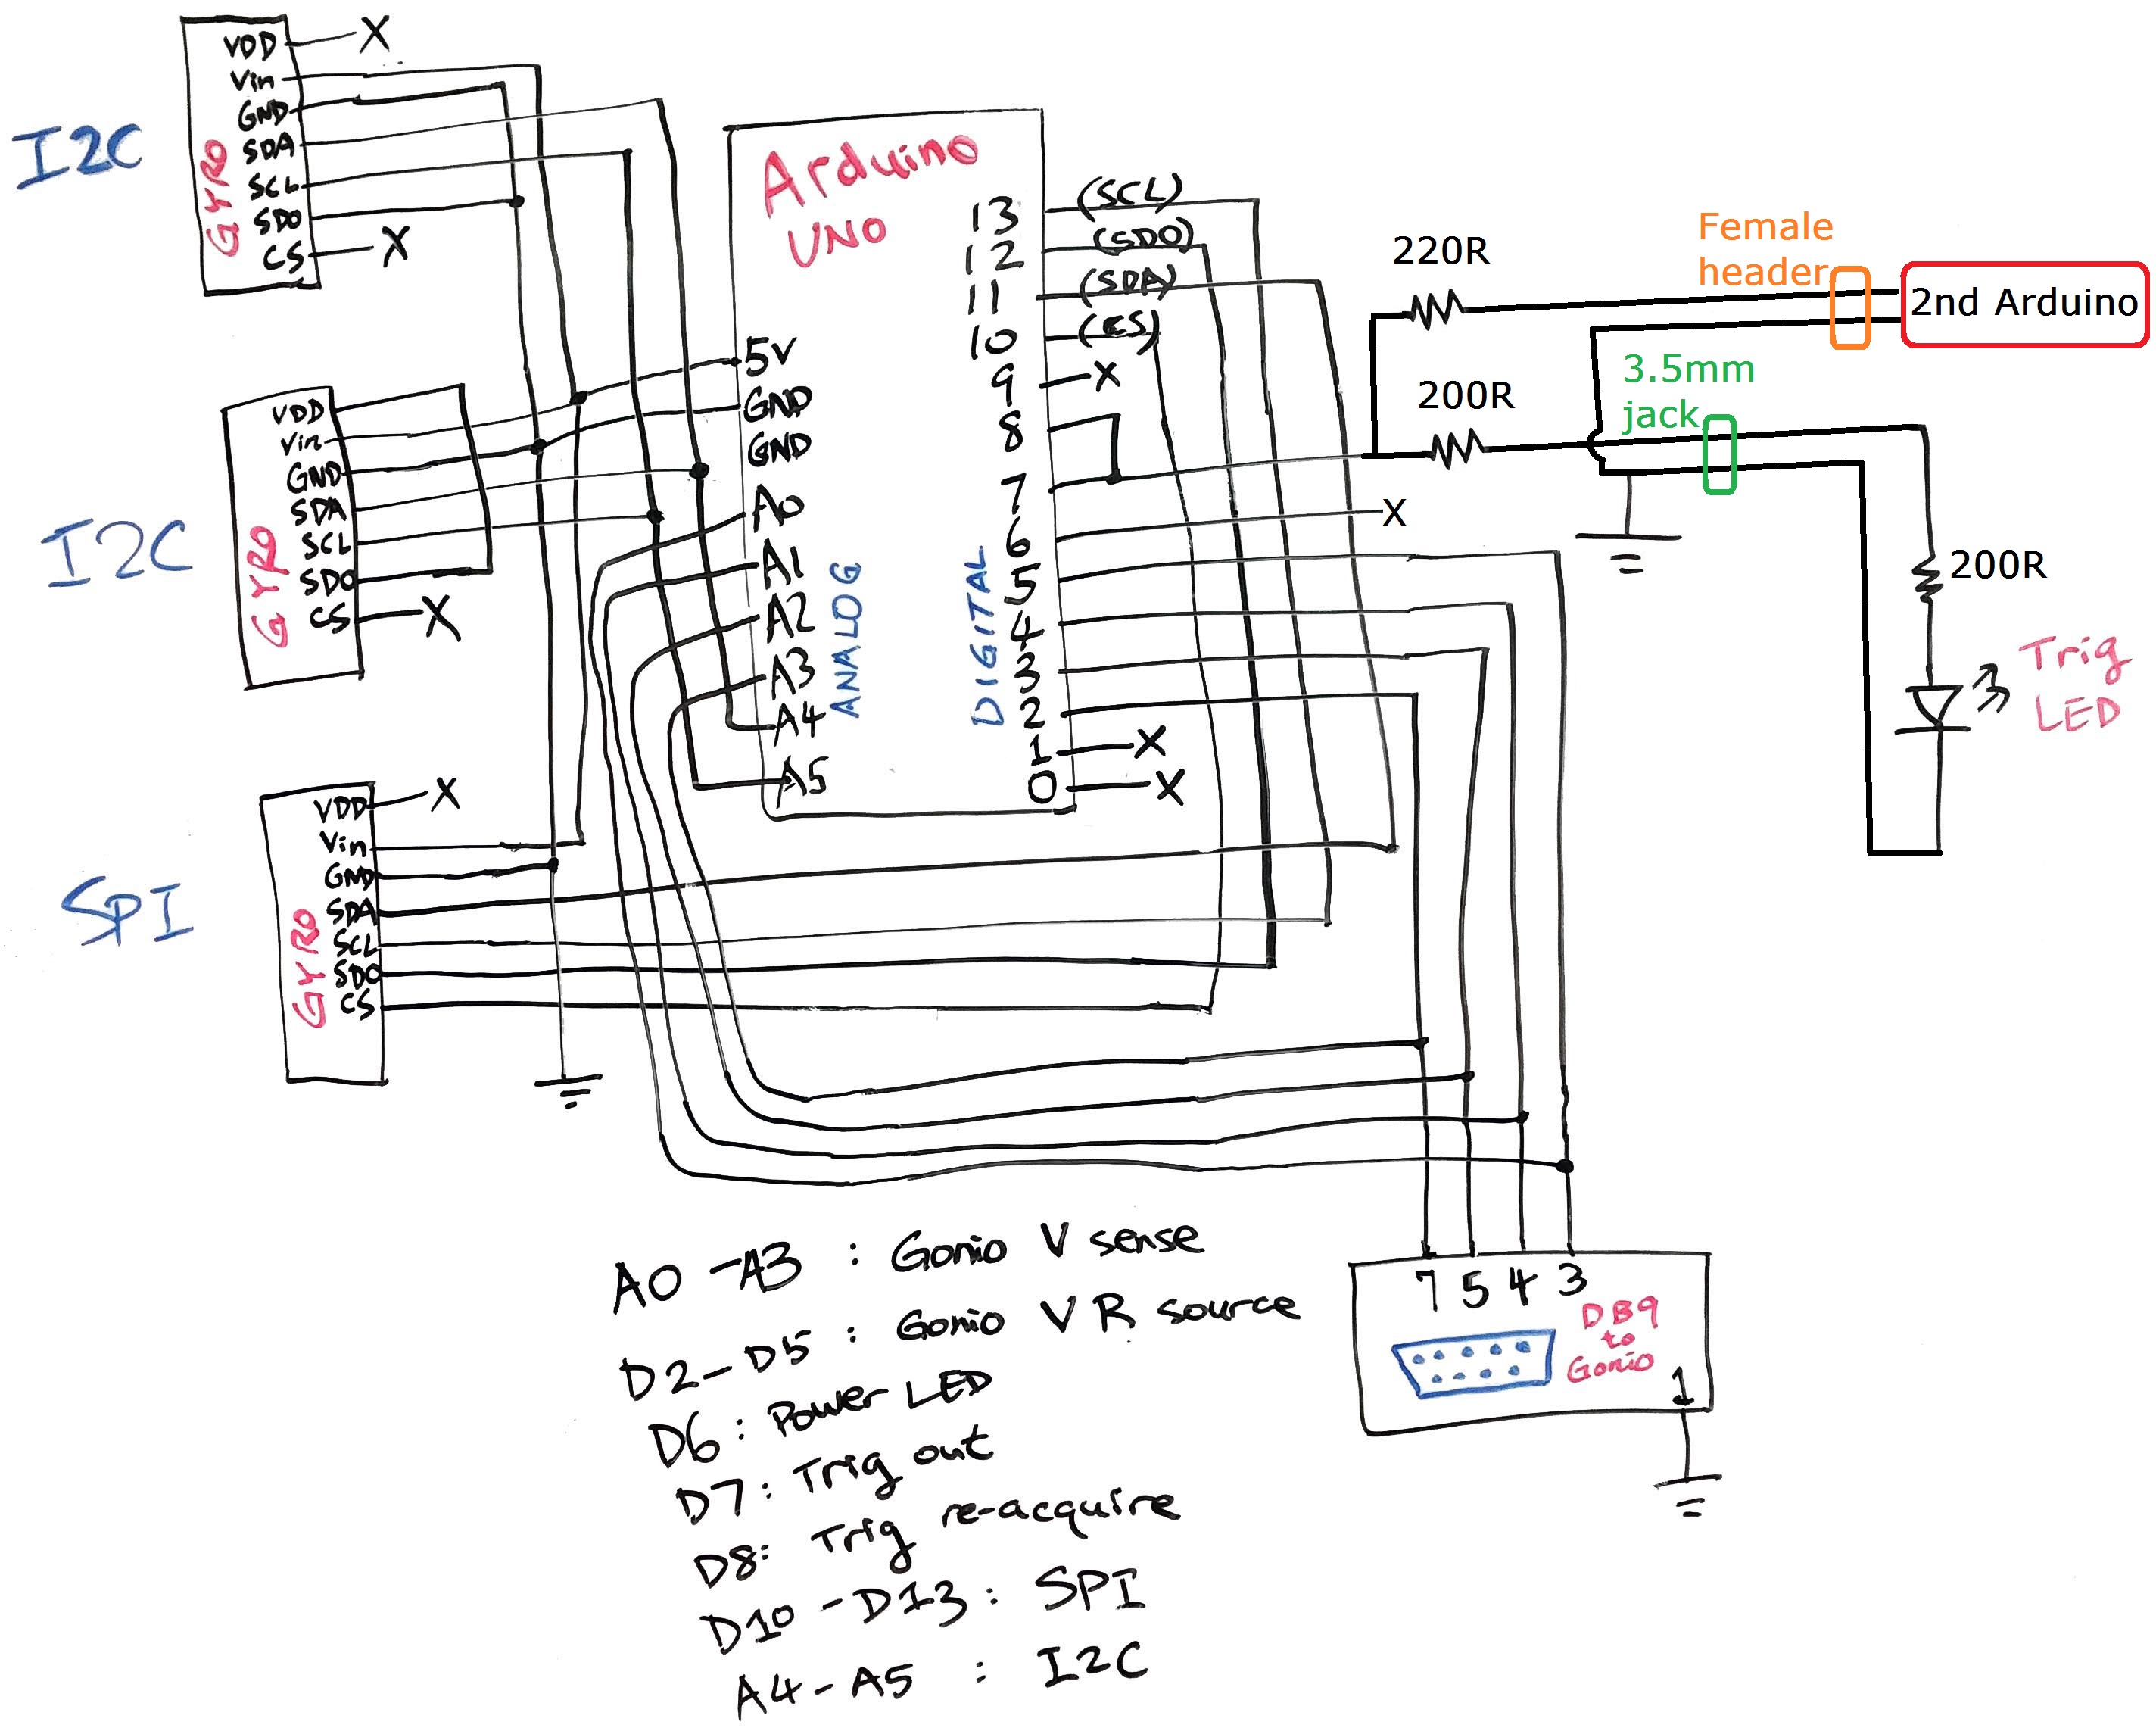 I2C
GYRO
VDD
X
Vin
GND
SDA
SCL
SDO
CS
X
I2C
GYRO
VDD
Vin
GND
SDA
SCL
SDO
CS
X
SPI
GYRO
VDD
X
Vin
GND
SDA
SCL
SDO
CS
Arduino
UNO
5V
GND
GND
A0
A1
A2
A3
A4
A5
ANALOG
DIGITAL
13 (SCL)
12 (SDO)
11 (SDA)
10 (CS)
9 X
8
7
6 X
5
4
3
2
1 X
0 X
220R
200R
Female
header
2nd Arduino
3.5mm
jack
200R
Trig
LED
7 5 4 3
DB9
to
Gonio
1
A0-A3 : Gonio V sense
D2-D5 : Gonio VR source
D6 : Power LED
D7: Trig out
D8: Trig re-acquire
D10-D13 : SPI
A4-A5 : I2C